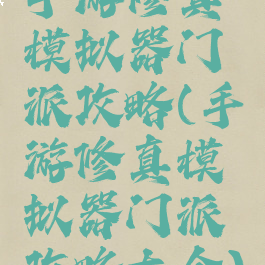 手游修真
模拟器门
派攻略(手
游修真模
拟器门派
攻略大全)